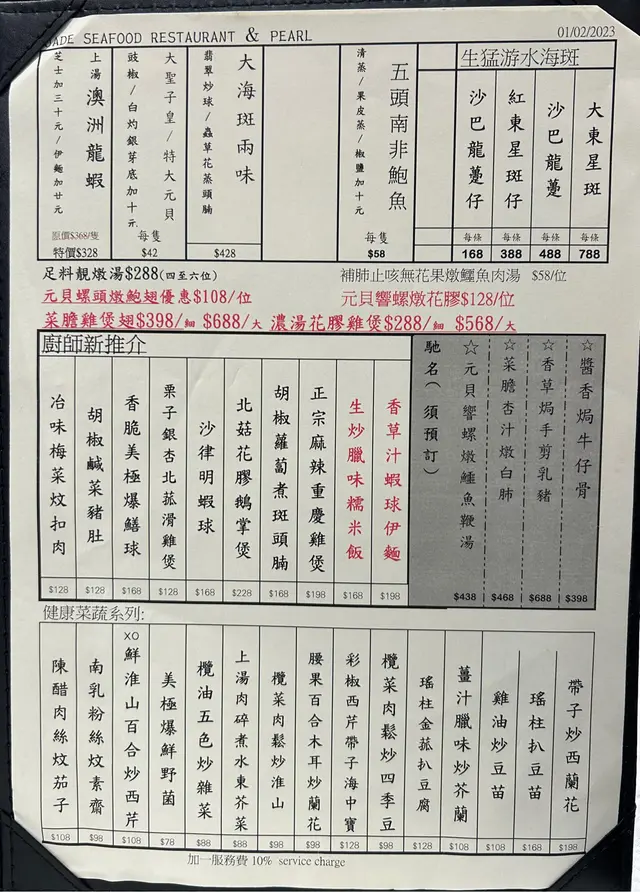 JADE SEAFOOD RESTAURANT & PEARL
01/02/2023
生猛游水海斑
大東星斑
每條
788
沙巴龍躉
每條
488
紅東星斑仔
每條
388
沙巴龍躉仔
每條
168
五頭南非鮑魚
清蒸/果皮蒸/椒鹽加十元
每隻
$58
大海斑兩味
翡翠炒球/蟲草花蒸頭腩
$428
大聖子皇/特大元貝
豉椒/白灼銀芽底加十元
每隻
$42
上湯澳洲龍蝦
芝士加三十元/伊麵加廿元
原價$368/隻
特價$328
足料靚燉湯$288(四至六位)
補肺止咳無花果燉鱷魚肉湯 $58/位
元貝螺頭燉鮑翅優惠$108/位
元貝響螺燉花膠$128/位
菜膽雞煲翅$398/細 $688/大 濃湯花膠雞煲$288/細 $568/大
廚師新推介
馳名(須預訂)
☆醬香焗牛仔骨
$398
☆香草焗手剪乳豬
$688
☆菜膽杏汁燉白肺
$468
☆元貝響螺燉鱷魚鞭湯
$438
香草汁蝦球伊麵
$198
生炒臘味糯米飯
$168
正宗麻辣重慶雞煲
$198
胡椒蘿蔔煮斑頭腩
$168
北菇花膠鵝掌煲
$228
沙律明蝦球
$168
栗子銀杏北菰滑雞煲
$128
香脆美極爆鱔球
$168
胡椒鹹菜豬肚
$128
冶味梅菜炆扣肉
$128
健康菜蔬系列:
帶子炒西蘭花
$198
瑤柱扒豆苗
$168
雞油炒豆苗
$108
薑汁臘味炒芥蘭
$108
瑤柱金菰扒豆腐
$128
欖菜肉鬆炒四季豆
$98
彩椒西芹帶子海中寶
$128
腰果百合木耳炒蘭花
$98
欖菜肉鬆炒淮山
$98
上湯肉碎煮水東芥菜
$88
欖油五色炒雜菜
$88
美極爆鮮野菌
$78
XO鮮淮山百合炒西芹
$108
南乳粉絲炆素齋
$98
陳醋肉絲炆茄子
$108
加一服務費 10% service charge